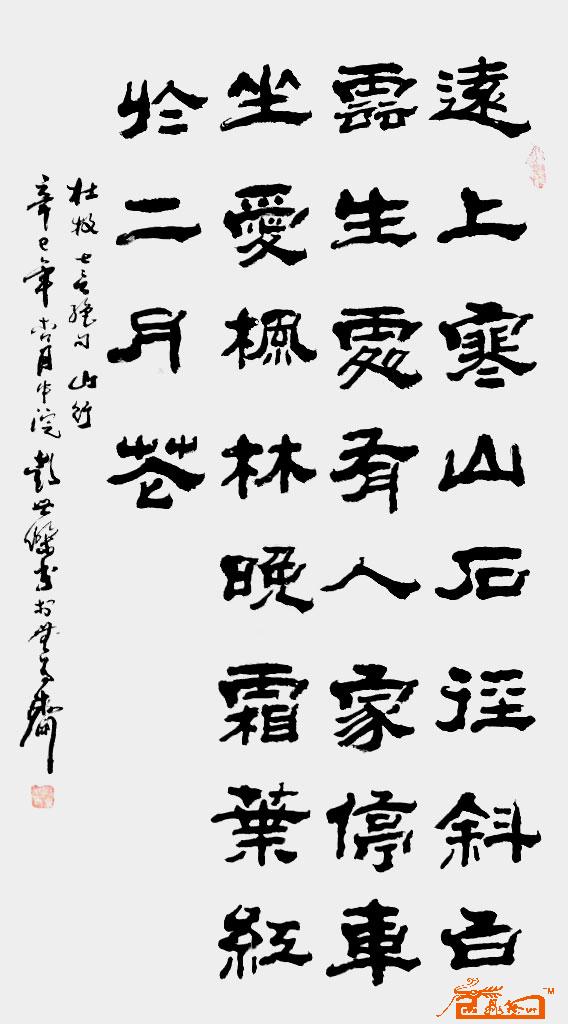 遠上寒山石徑斜白
雲生處有人家停車
坐愛楓林晚霜葉紅
於二月花
杜牧七言絕句山行
辛巳年 月中浣彭世傑書於